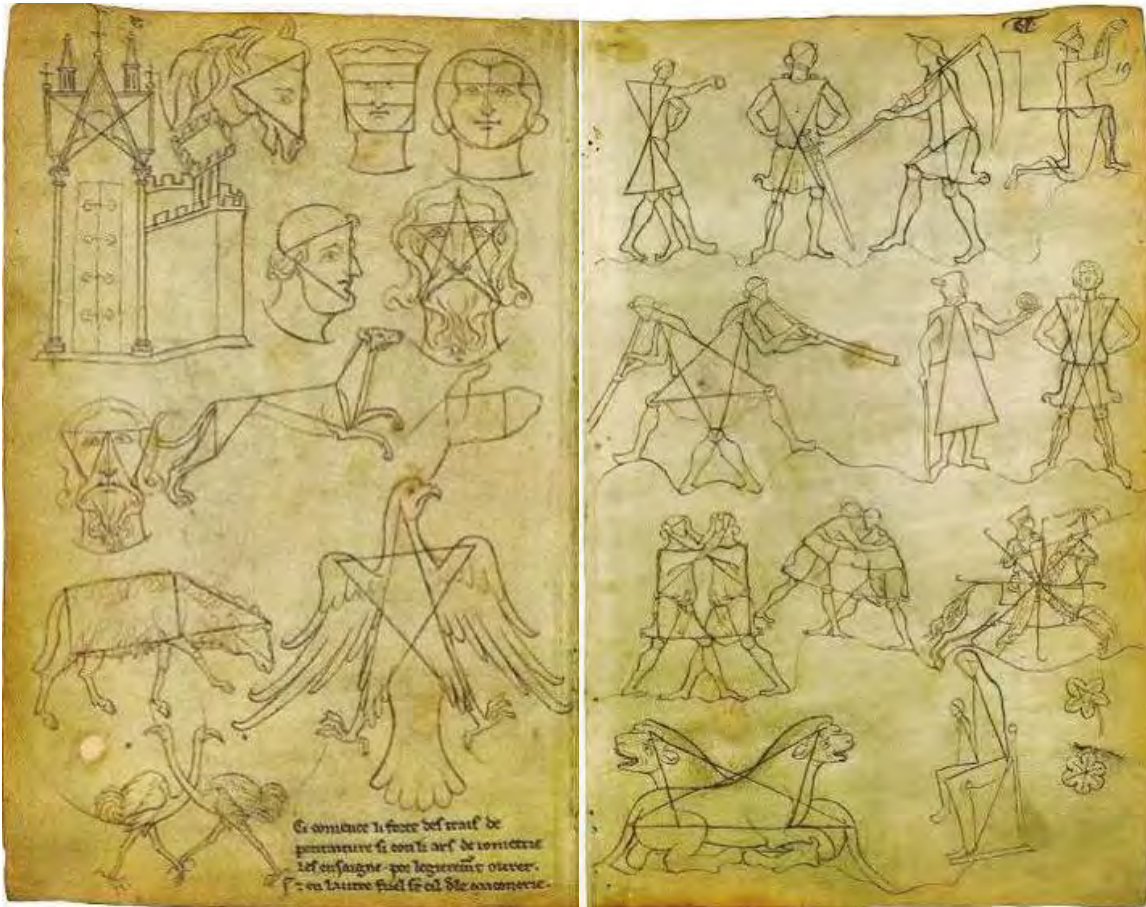 19
Ci comence li force des trais de
portraiture si con li ars de iometrie
les ensaigne por legieremt ovrer.
en lautre fuel st cil dle maconerie.